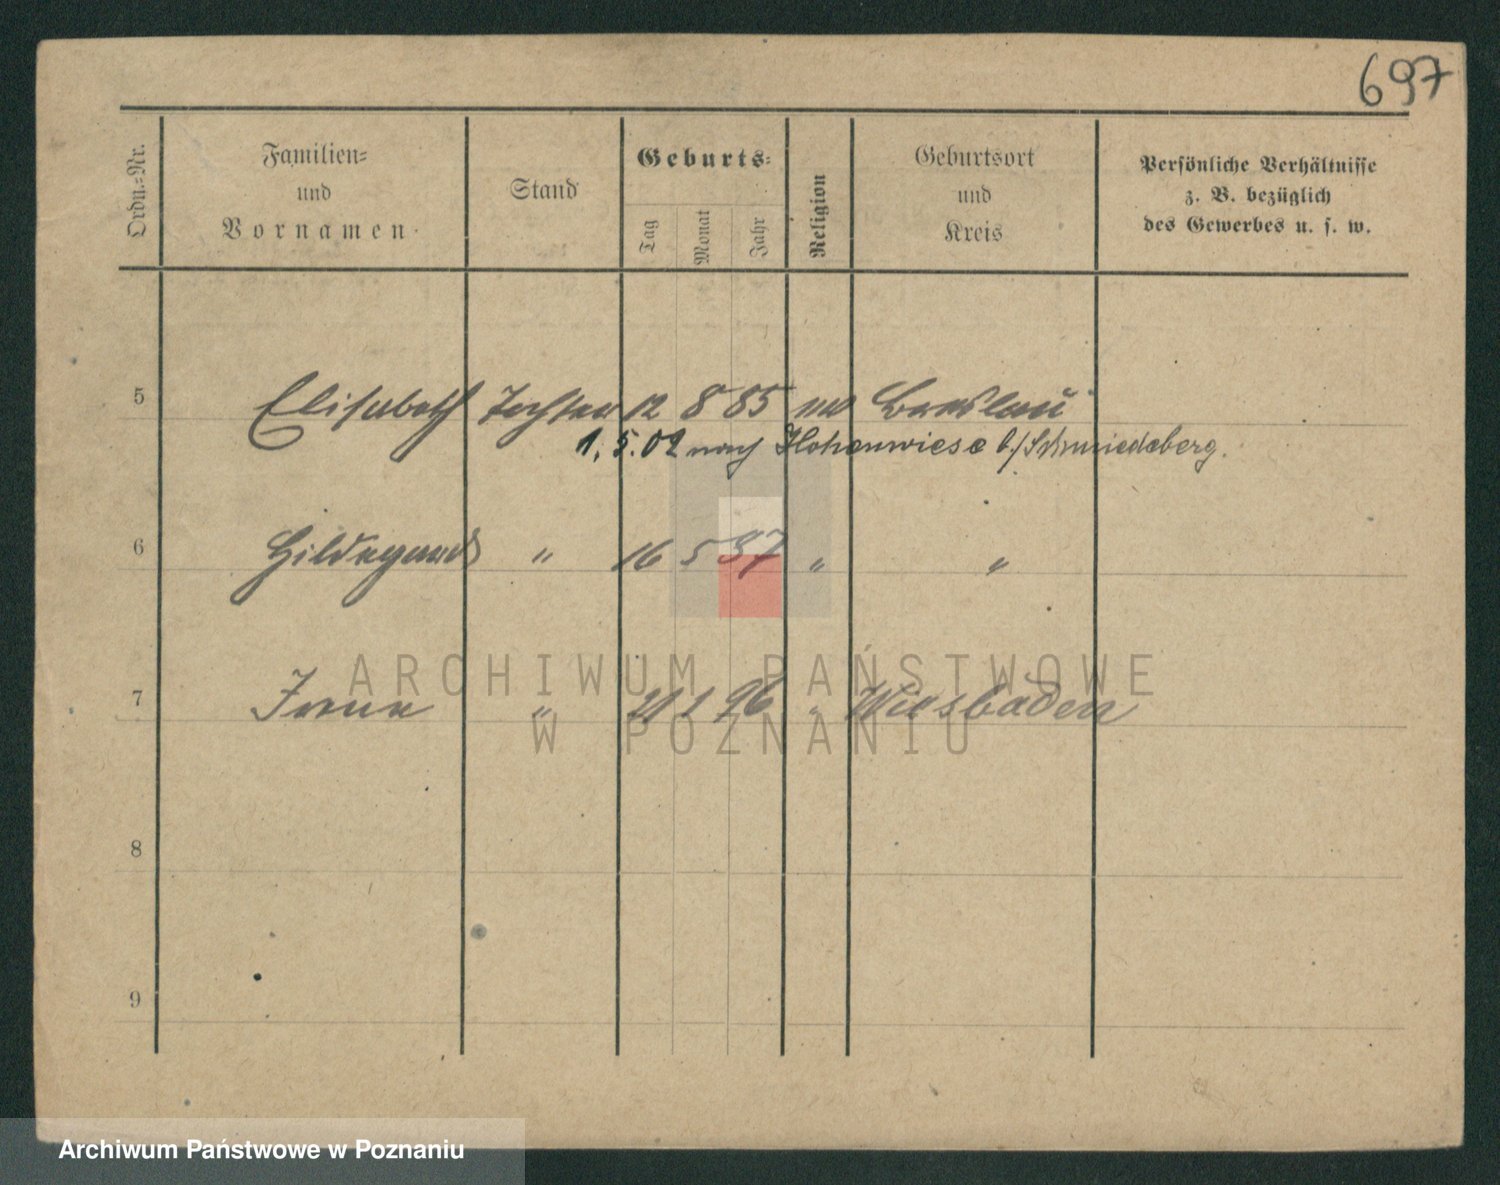 697
Ordn.-Nr. Familien= und Vornamen Stand Geburts= Tag Monat Jahr Religion Geburtsort und Kreis Persönliche Verhältnisse z. B. bezüglich des Gewerbes u. s. w.
5 Elisabeth Tochter 12 8 85 Breslau
1.5.02 nach Hohenwiese b/Schmiedeberg.
6 Hildegard " 16 5 87 " "
7 Irene " 1 96 " Wiesbaden
8
9
ARCHIWUM PAŃSTWOWE
W POZNANIU
Archiwum Państwowe w Poznaniu